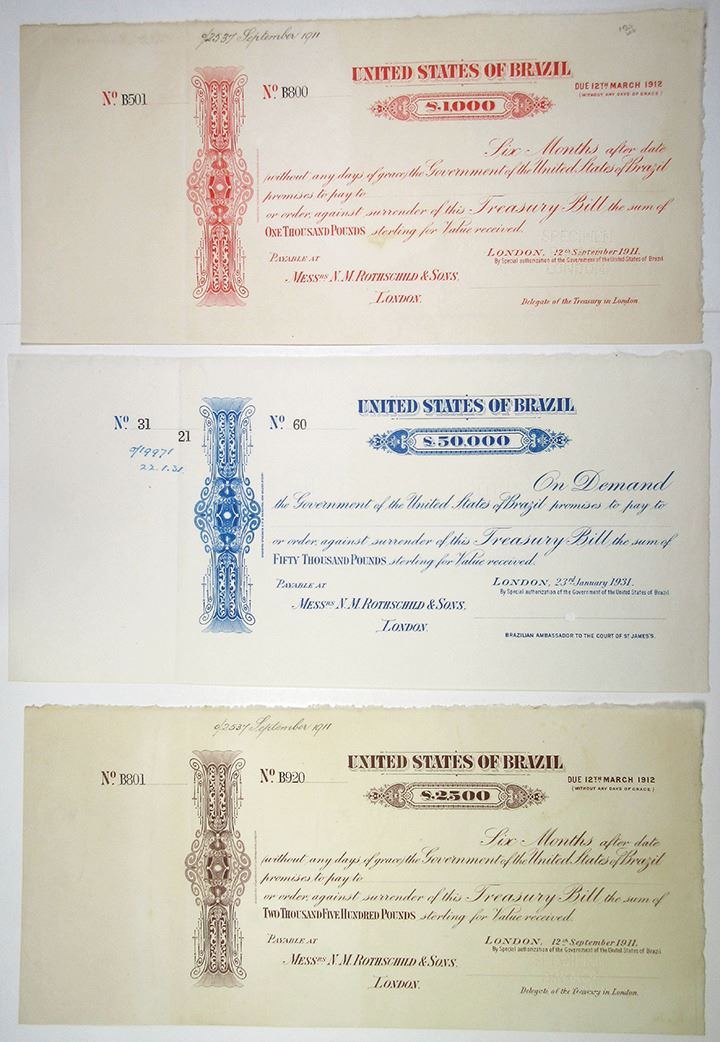 o/2537 September 1911
UNITED STATES OF BRAZIL
No B501
No B800
DUE 12TH MARCH 1912
(WITHOUT ANY DAYS OF GRACE)
£1,000
Six Months after date
(without any days of grace) the Government of the United States of Brazil
promises to pay to
or order, against surrender of this Treasury Bill the sum of
ONE THOUSAND POUNDS sterling for Value received.
SPECIMEN
PAYABLE AT
LONDON, 12th September 1911.
By Special authorization of the Government of the United States of Brazil.
MESSRS N. M. ROTHSCHILD & SONS.
LONDON.
Delegate of the Treasury in London.
UNITED STATES OF BRAZIL
No 31
No 60
21
£50,000
o/19971
22.1.31.
On Demand
the Government of the United States of Brazil promises to pay to
or order, against surrender of this Treasury Bill, the sum of
FIFTY THOUSAND POUNDS sterling for Value received.
PAYABLE AT
LONDON, 23rd January 1931.
By Special authorization of the Government of the United States of Brazil
MESSRS N. M. ROTHSCHILD & SONS.
LONDON.
BRAZILIAN AMBASSADOR TO THE COURT OF ST JAMES'S.
o/2537 September 1911
UNITED STATES OF BRAZIL
No B801
No B920
DUE 12TH MARCH 1912
(WITHOUT ANY DAYS OF GRACE)
£2500
Six Months after date
(without any days of grace) the Government of the United States of Brazil
promises to pay to
or order, against surrender of this Treasury Bill the sum of
TWO THOUSAND FIVE HUNDRED POUNDS sterling for Value received.
PAYABLE AT
LONDON, 12th September 1911.
By Special authorization of the Government of the United States of Brazil.
MESSRS N. M. ROTHSCHILD & SONS.
LONDON.
Delegate of the Treasury in London.